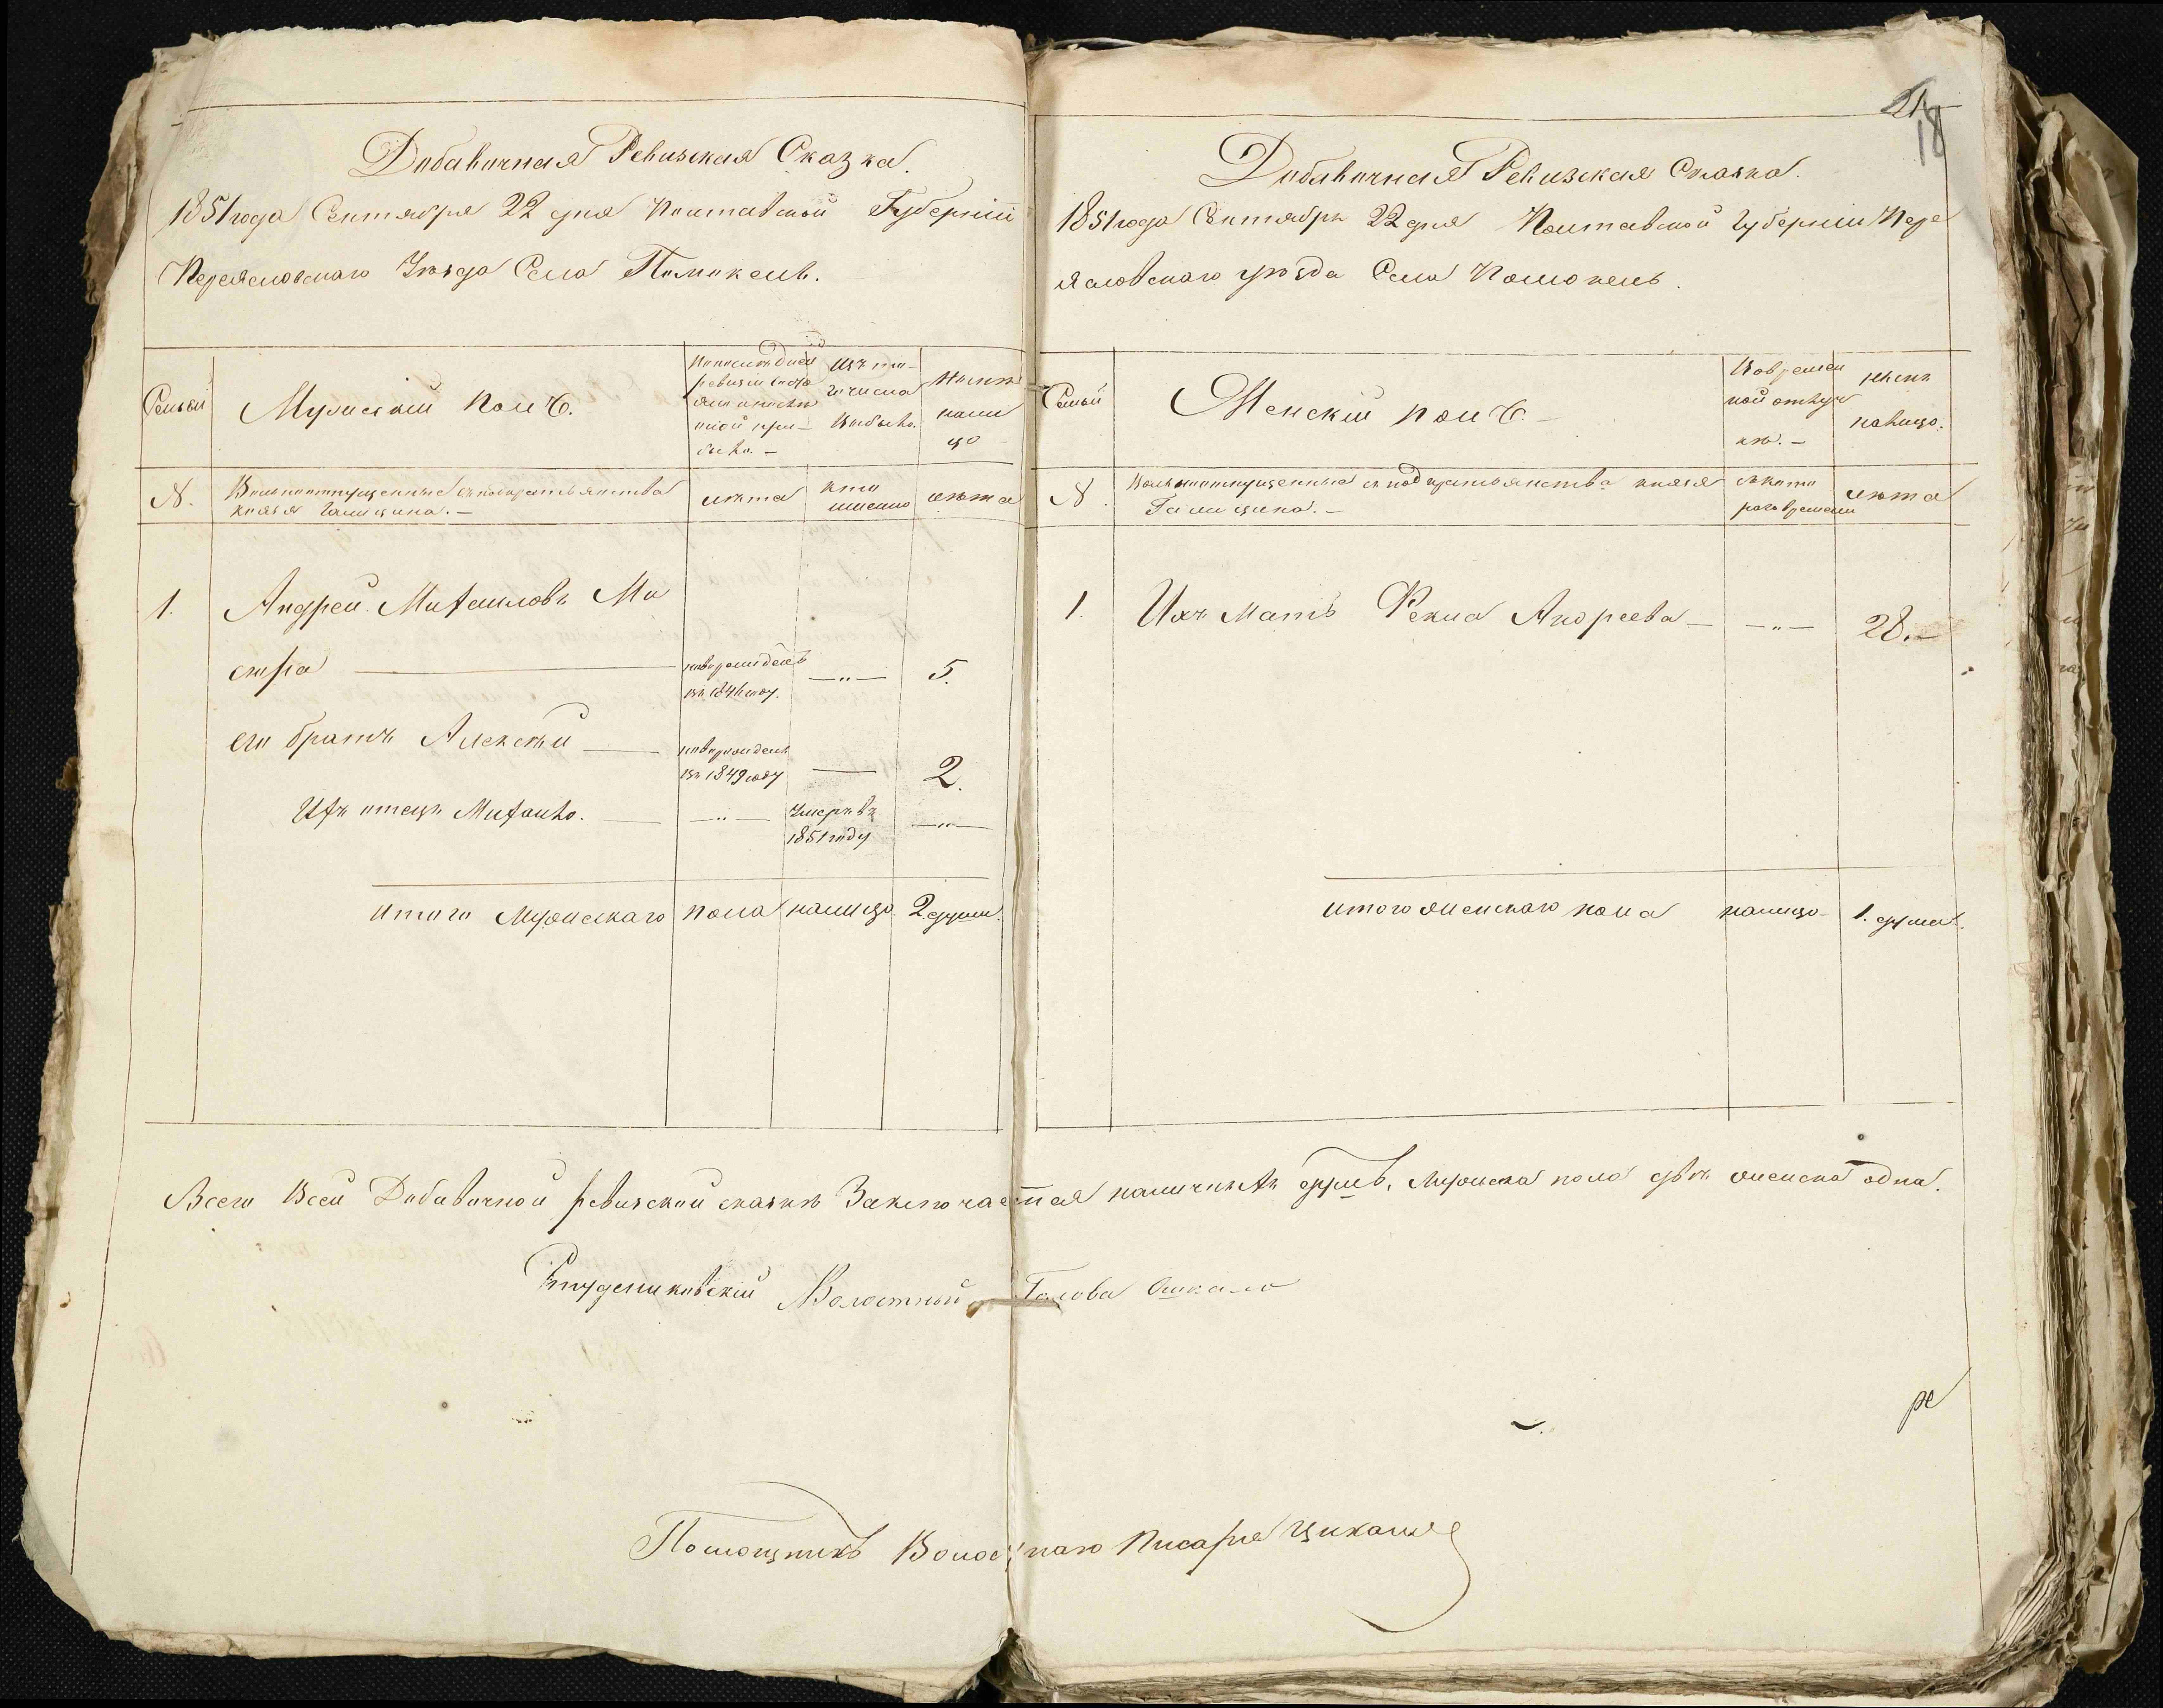 Добавочная Ревизская Сказка.
1851 года Сентября 22 дня Полтавской Губернiи
Переясловскаго Уѣзда Села Помокель.
Семьи
Мужескiй полъ.
По последней
ревизiи состо
яло и после
оной при-
было. -
Изъ то-
го числа
выбыло.
Нынѣ
нали
цо
№.
Вольноотпущенные съ подкрестьянства
князя Галицина. -
лѣта
кто
именно
лѣта
1.
Андрей Михаиловъ Ми
снѣра
новорожденъ
въ 1846 году.
— „ —
5.
его братъ Алексѣй
новорожденъ
въ 1849 году
2.
Ихъ отецъ Михаило.
— „ —
Умеръ въ
1851 году
— „ —
итого Мужескаго пола налицо 2 души.
21
18
Добавочная Ревизская Сказка.
1851 года Сентября 22 дня Полтавской Губернiи Пере
ясловскаго уѣзда Села Помокель.
Семьи
Женскiй полъ. -
Во времен
ной отлуч
кѣ. -
нынѣ
налицо.
№.
Вольноотпущенные съ подкрестьянства князя
Галицина. -
съ кото
раго времени
лѣта
1.
Ихъ мать Фекла Андреева
— „ —
28. -
итого женскаго пола налицо 1. душа.
Всего в сей Добавочной ревизской сказкѣ Заключается наличныхъ душъ, мужеска пола двѣ женска одна.
Студениковскiй Волостный Голова Ошкало
ре
Помощникъ Волостнаго Писаря Цикало